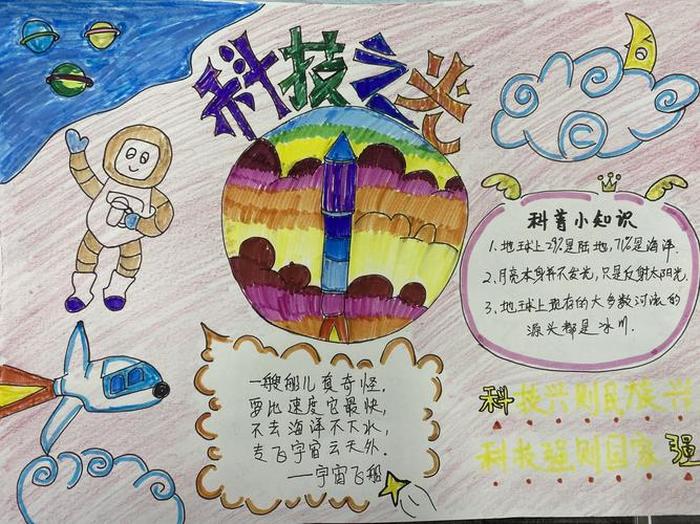 科技之光
科普小知识
1.地球上29%是陆地,71%是海洋.
2.月亮本身并不发光,只是反射太阳光
3.地球上现存的大多数河流的
源头都是冰川.
一艘船儿真奇怪.
要比速度它最快,
不去海洋不下水,
专飞宇宙云天外.
——宇宙飞船
科技兴则民族兴
科技强则国家强